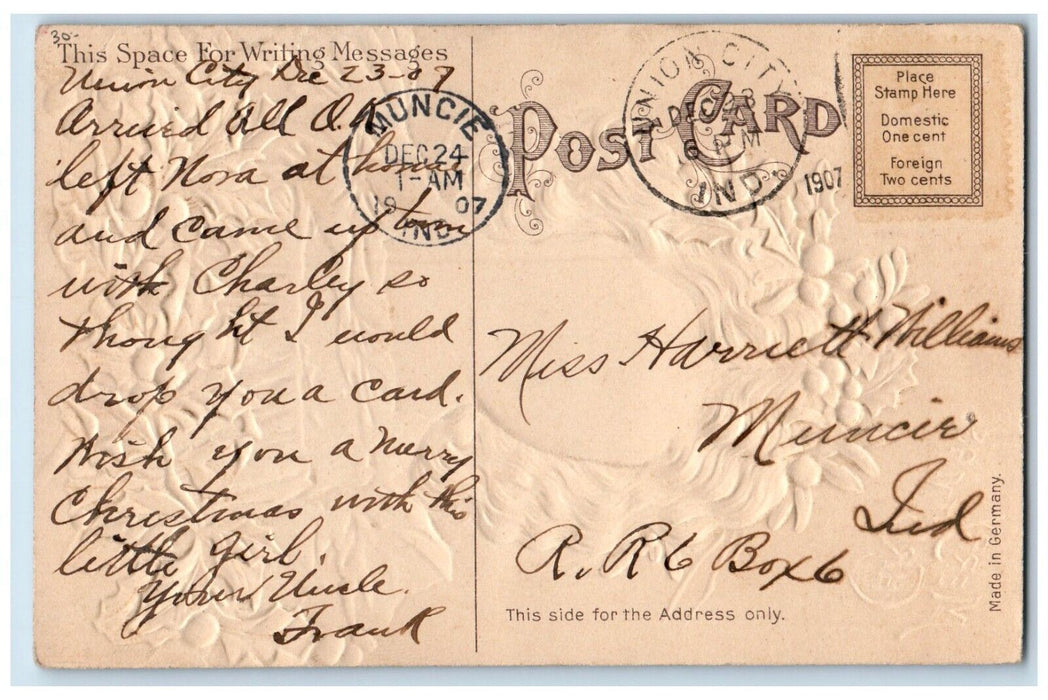 30-
This Space For Writing Messages
Union City Dec 23-07
Arrived All O.K
left Nora at home
and came up town
with Charley so
thought I would
drop you a card.
Wish you a merry
Christmas with this
little girl.
Your Uncle.
Frank
MUNCIE
DEC 24
1-AM
19 07
IND.
POST CARD
UNION CITY
DEC 23
6 PM
IND.
1907
Place
Stamp Here
Domestic
One cent
Foreign
Two cents
Miss Harriett Williams
Muncie
Ind
R. R 6 Box 6
This side for the Address only.
Made in Germany.